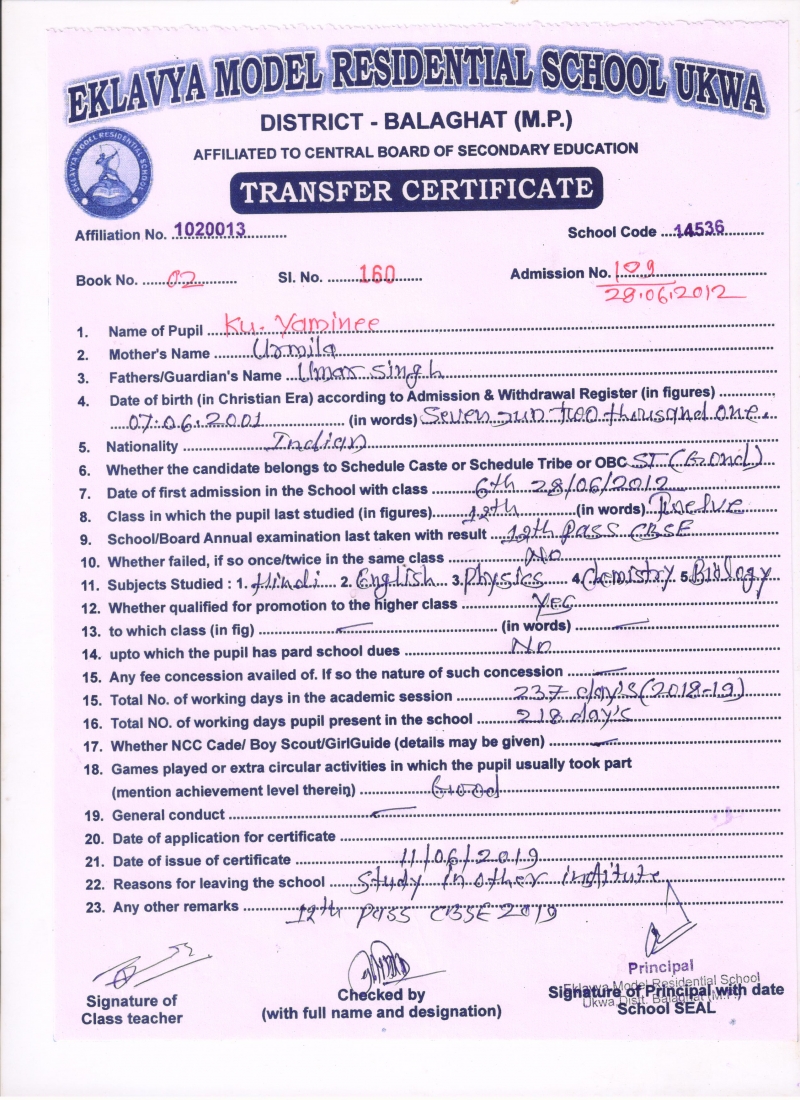 EKLAVYA MODEL RESIDENTIAL SCHOOL UKWA
DISTRICT - BALAGHAT (M.P.)
AFFILIATED TO CENTRAL BOARD OF SECONDARY EDUCATION
EKLAVYA MODEL RESIDENTIAL SCHOOL
TRANSFER CERTIFICATE
Affiliation No. 1020013 School Code 14536
Book No. 02 Sl. No. 160 Admission No. 109
28.06.2012
1. Name of Pupil Ku. Yaminee
2. Mother's Name Urmila
3. Fathers/Guardian's Name Umar Singh
4. Date of birth (in Christian Era) according to Admission & Withdrawal Register (in figures)
07.06.2001 (in words) Seven Jun two thousand one.
5. Nationality Indian
6. Whether the candidate belongs to Schedule Caste or Schedule Tribe or OBC ST (Gond)
7. Date of first admission in the School with class 6th 28/06/2012
8. Class in which the pupil last studied (in figures) 12th (in words) Twelve
9. School/Board Annual examination last taken with result 12th Pass CBSE
10. Whether failed, if so once/twice in the same class No
11. Subjects Studied : 1. Hindi 2. English 3. Physics 4. Chemistry 5. Biology
12. Whether qualified for promotion to the higher class Yes
13. to which class (in fig) (in words)
14. upto which the pupil has pard school dues No
15. Any fee concession availed of. If so the nature of such concession
15. Total No. of working days in the academic session 237 day's (2018-19)
16. Total NO. of working days pupil present in the school 218 day's
17. Whether NCC Cade/ Boy Scout/GirlGuide (details may be given)
18. Games played or extra circular activities in which the pupil usually took part
(mention achievement level therein) Good
19. General conduct
20. Date of application for certificate
21. Date of issue of certificate 11/06/2019
22. Reasons for leaving the school Study in other institute
23. Any other remarks 12th Pass CBSE 2019
Principal
Eklavya Model Residential School
Ukwa Distt. Balaghat (M.P.)
Signature of Checked by Signature of Principal with date
Class teacher (with full name and designation) School SEAL